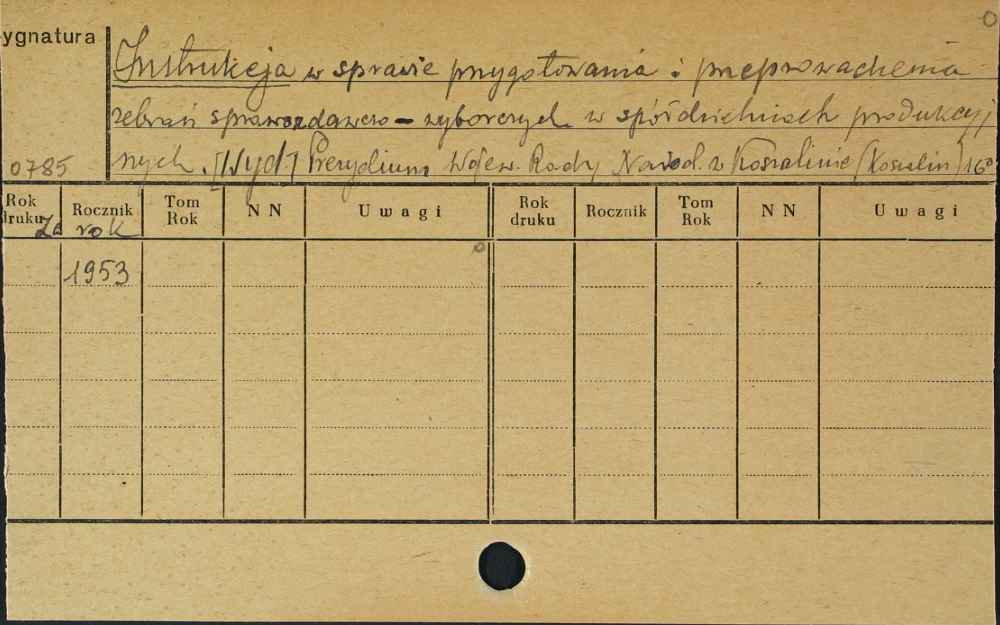 ygnatura
Instrukcja w sprawie przygotowania i przeprowadzenia
zebrań sprawozdawczo-wyborczych w spółdzielniach produkcyj
nych. [Wyd] Prezydium Wojew. Rady Narod. w Koszalinie (Koszalin) 16°
0785
Rok druku Rocznik Tom Rok NN Uwagi Rok druku Rocznik Tom Rok NN Uwagi
Za rok
1953